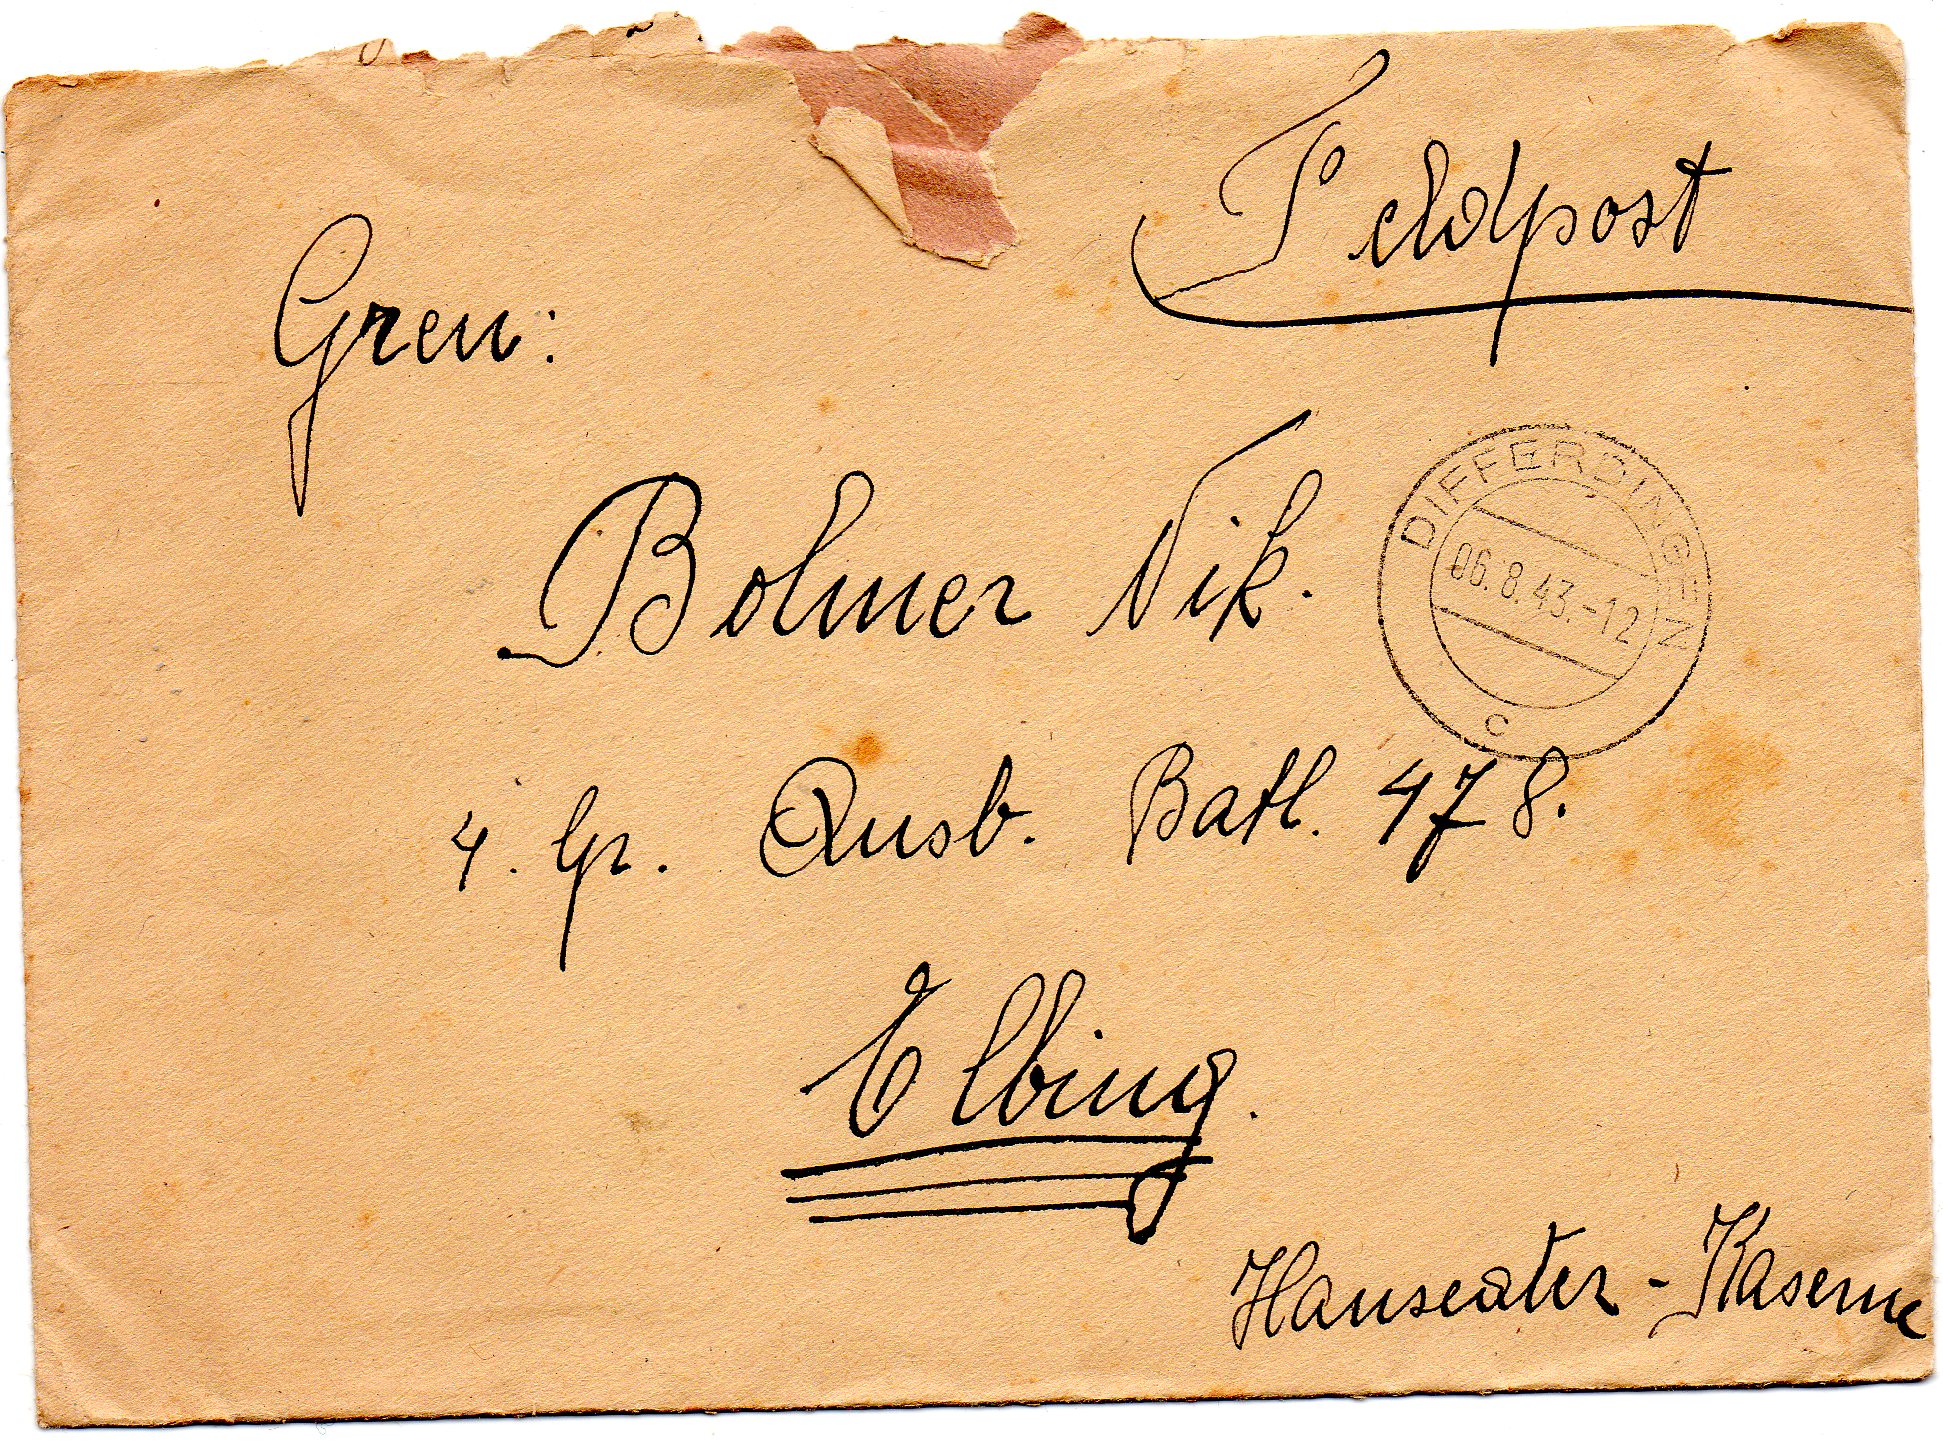 Feldpost
Gren:
Bohmer Nik.
DIFFERDINGEN
06.8.43.-12
c
4. Gr. Ausb. Batl. 478.
Elbing.
Hanseater-Kaserne